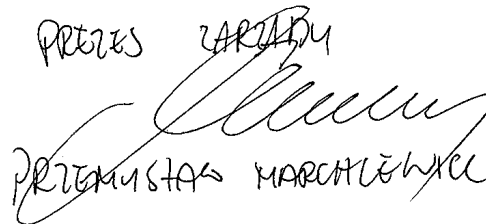 PREZES ZARZĄDU
PRZEMYSŁAW MARCHLEWICZ